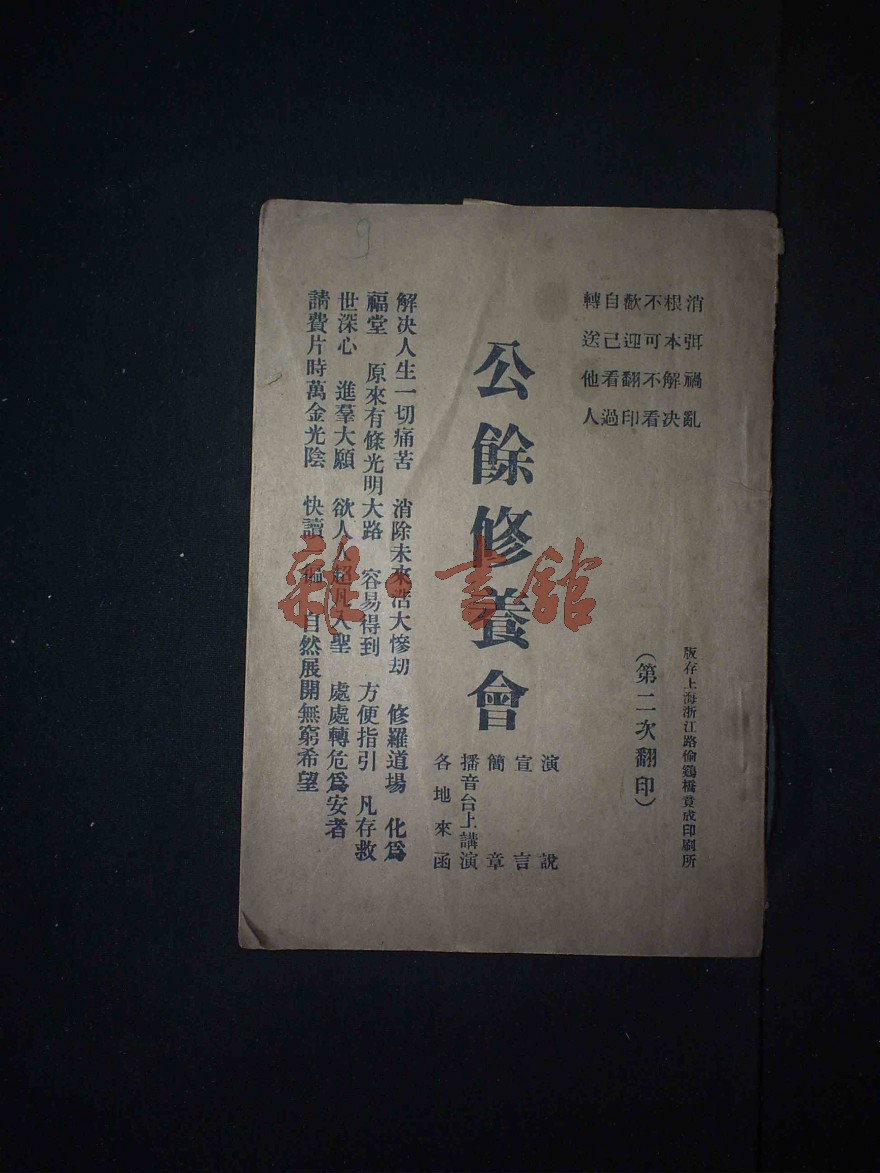 消弭禍亂
根本解决
不可不看
歡迎翻印
自己看過
轉送他人
版存上海浙江路偷鷄橋竟成印刷所
(第二次翻印)
公餘修養會
演說
宣言
簡章
播音台上講演
各地來函
解决人生一切痛苦 消除未來浩大慘刧 修羅道場 化爲
福堂 原來有條光明大路 容易得到 方便指引 凡存救
世深心 進羣大願 欲人人超凡入聖 處處轉危爲安者
請費片時萬金光陰 快讀一遍 自然展開無窮希望
9
雜·書館